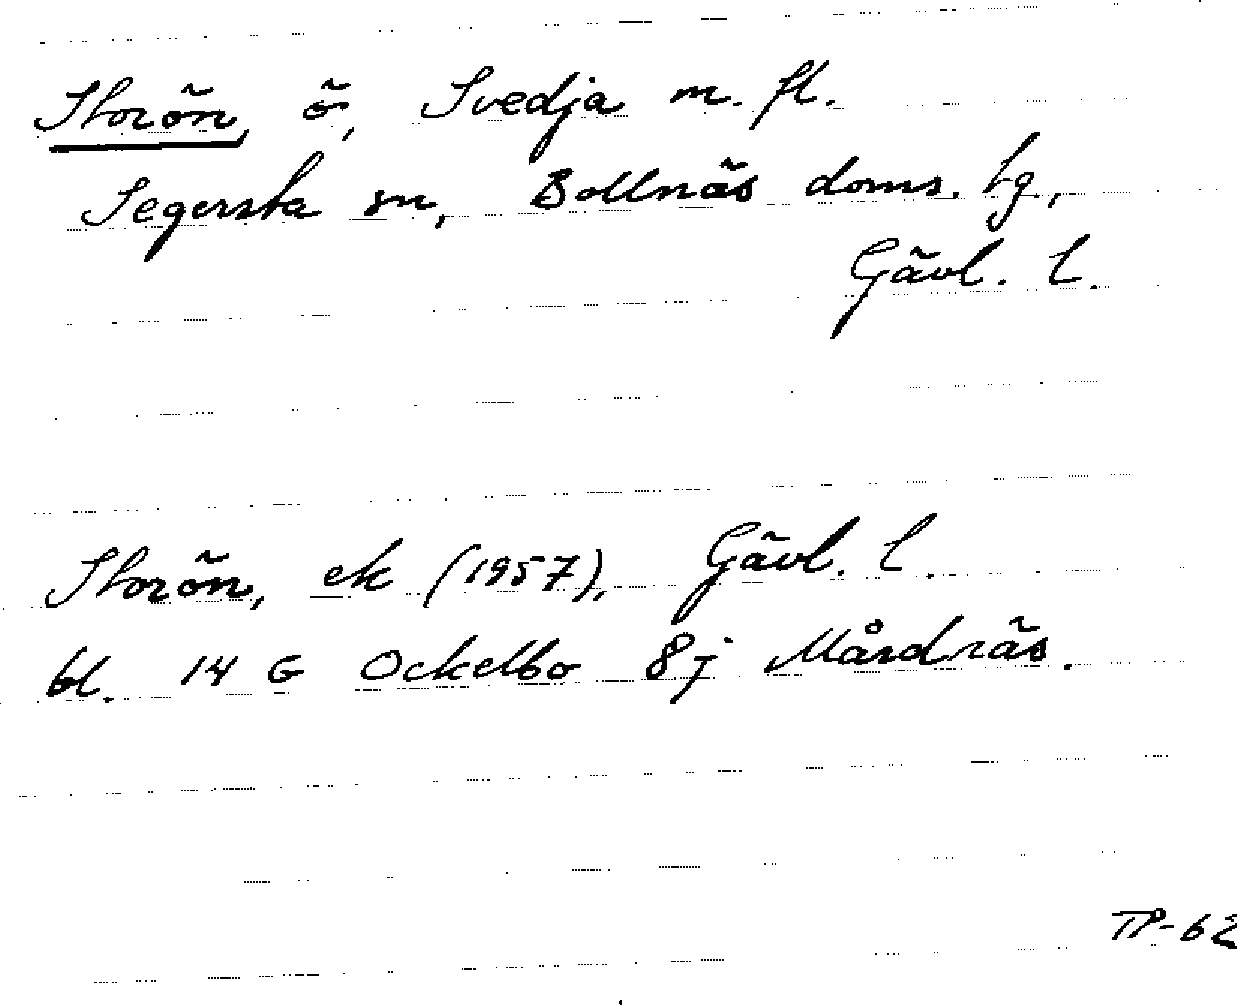 Storön, ö, Svedja m. fl.
Segersta sn, Bollnäs doms. hg,
Gävl. l.
Storön, ek (1957), Gävl. l.
bl. 14 G Ockelbo 8j Mårdnäs.
TP-62